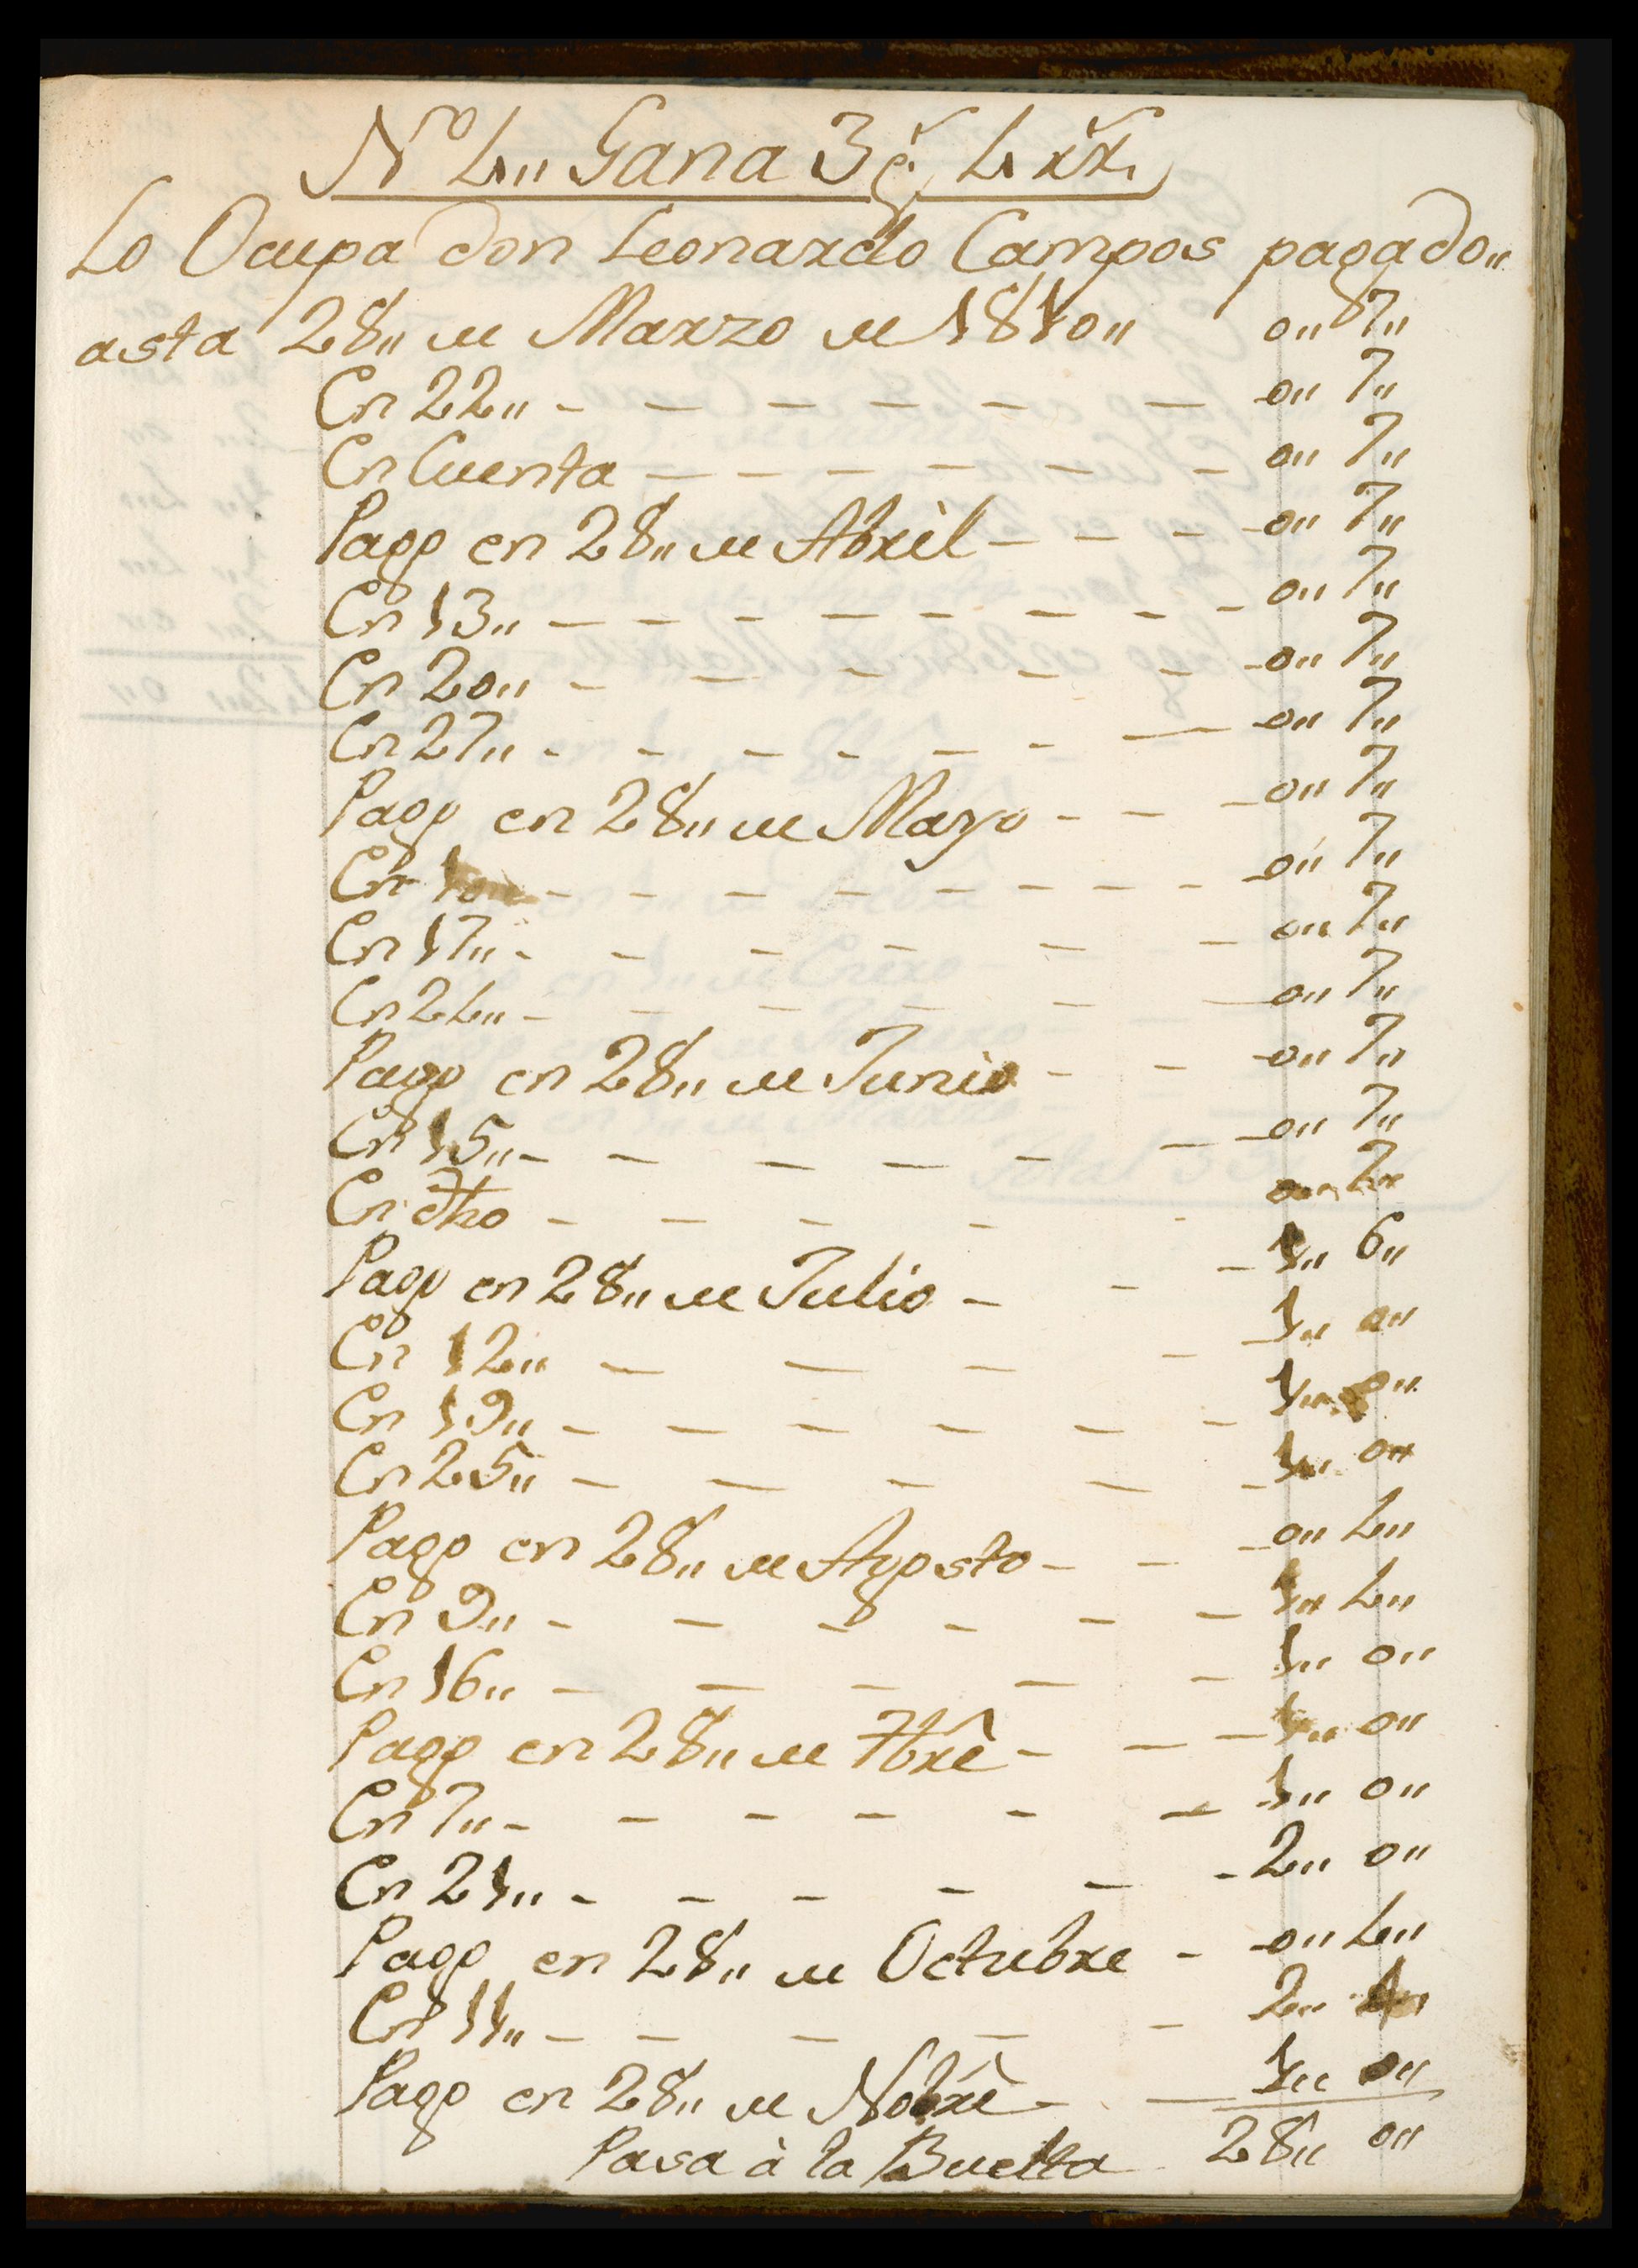 Nº 4,, Gana 3 p.ˢ 4 rr.ˢ
Lo Ocupa don Leonardo Campos pagado,,
asta 28,, de Marzo de 1810,, 0,, 7,,
En 22,, - - - - - - 0,, 7,,
En Cuenta - - - - - - 0,, 7,,
Pago en 28,, de Abril - - - 0,, 7,,
En 13,, - - - - - - - - 0,, 7,,
En 20,, - - - - - - 0,, 7,,
En 27,, - - - - - - - 0,, 7,,
Pago en 28,, de Mayo - - - 0,, 7,,
En 10,, - - - - - - - - 0,, 7,,
En 17,, - - - - - - 0,, 7,,
En 24,, - - - - - - 0,, 7,,
Pago en 28,, de Junio - - 0,, 7,,
En 15,, - - - - - - - 0,, 7,,
En dho - - - - - 0,, 7,,
Pago en 28,, de Julio - - - 1,, 6,,
En 12,, - - - - - 1,, 0,,
En 19,, - - - - - - 1,, 0,,
En 25,, - - - - - 1,, 0,,
Pago en 28,, de Agosto - - - 0,, 4,,
En 9,, - - - - - - 1,, 4,,
En 16,, - - - - - 1,, 0,,
Pago en 28,, de 7brê - - - 1,, 0,,
En 7,, - - - - - - 1,, 0,,
En 21,, - - - - - - 2,, 0,,
Pago en 28,, de Octubre - 0,, 4,,
En 11,, - - - - - 2,, 4,,
Pago en 28,, de Nobrê - - 1,, 0,,
Pasa à la Buelta 28,, 0,,